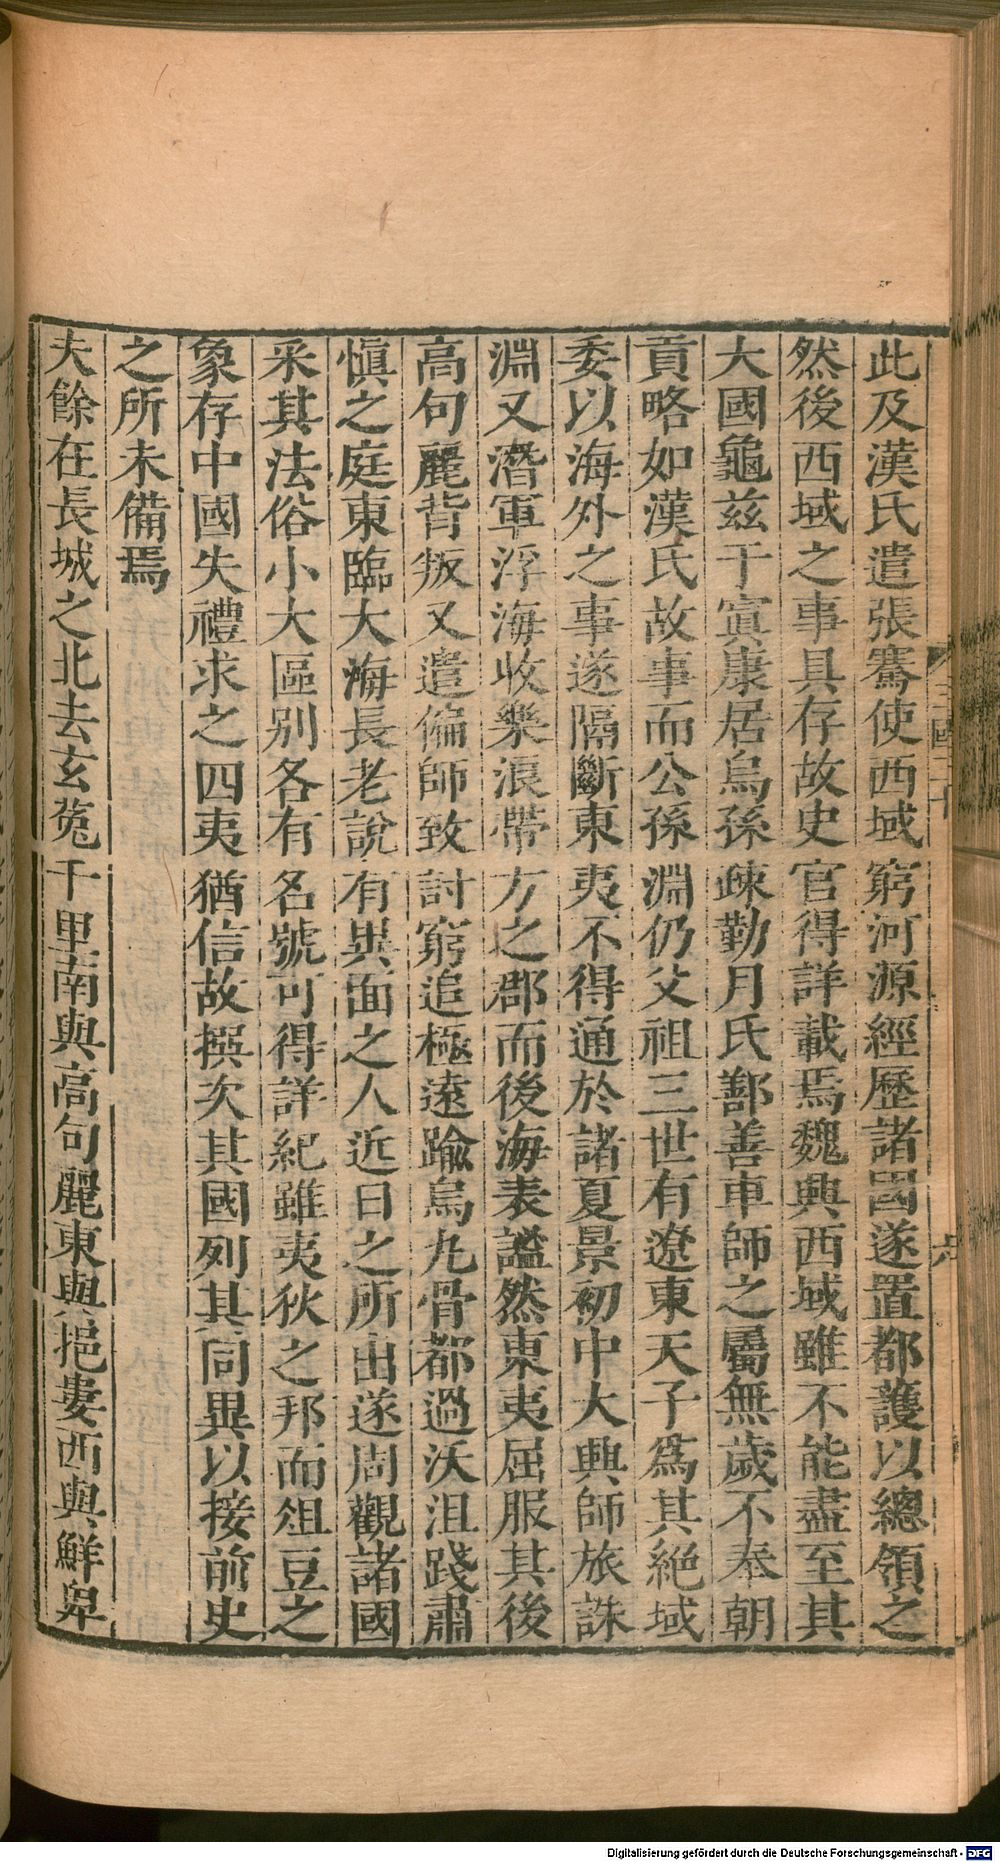 此及漢氏遣張騫使西域窮河源經歷諸國遂置都護以總領之
然後西域之事具存故史官得詳載焉魏興西域雖不能盡至其
大國龜玆于窴康居烏孫疎勒月氏鄯善車師之屬無歲不奉朝
貢略如漢氏故事而公孫淵仍父祖三世有遼東天子爲其絕域
委以海外之事遂隔斷東夷不得通於諸夏景初中大興師旅誅
淵又潛軍浮海收樂浪帶方之郡而後海表謐然東夷屈服其後
高句麗背叛又遣偏師致討窮追極遠踰烏九骨都過沃沮踐肅
愼之庭東臨大海長老說有異面之人近日之所出遂周觀諸國
采其法俗小大區別各有名號可得詳紀雖夷狄之邦而俎豆之
象存中國失禮求之四夷猶信故撰次其國列其同異以接前史
之所未備焉
夫餘在長城之北去玄菟千里南與高句麗東與挹婁西與鮮卑
六
Digitalisierung gefördert durch die Deutsche Forschungsgemeinschaft - DFG